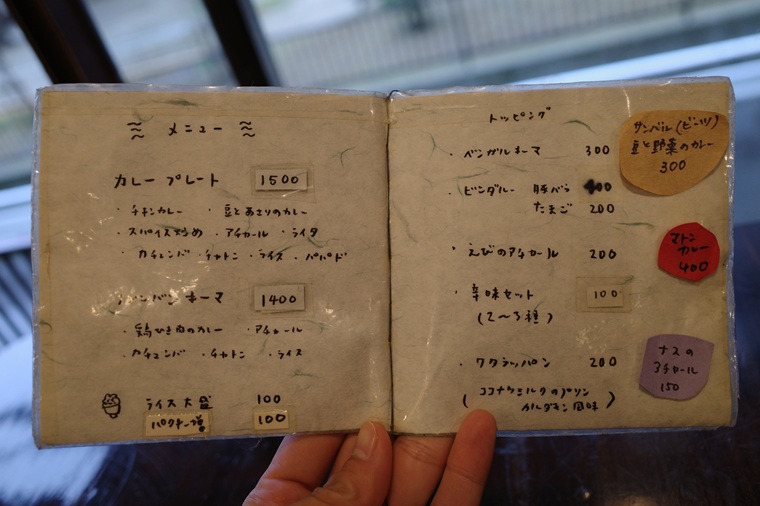 メニュー
カレープレート 1500
・チキンカレー ・豆とあさりのカレー
・スパイス炒め ・アチャール ・ライタ
・カチュンバ ・チャトニ ・ライス ・パパド
キーマ 1400
・鶏ひき肉のカレー ・アチャール
・カチュンバ ・チャトニ ・ライス
ライス大盛 100
パクチー増 100
トッピング
・ベンガルキーマ 300
・ビンダルー 豚バラ 400
たまご 200
・えびのアチャール 200
・辛味セット 100
(2〜3種)
・ワタラッパン 200
(ココナツミルクのプリン
カルダモン風味)
サンバル(ビーツ)
豆と野菜のカレー
300
マトン
カレー
400
ナスの
アチャール
150